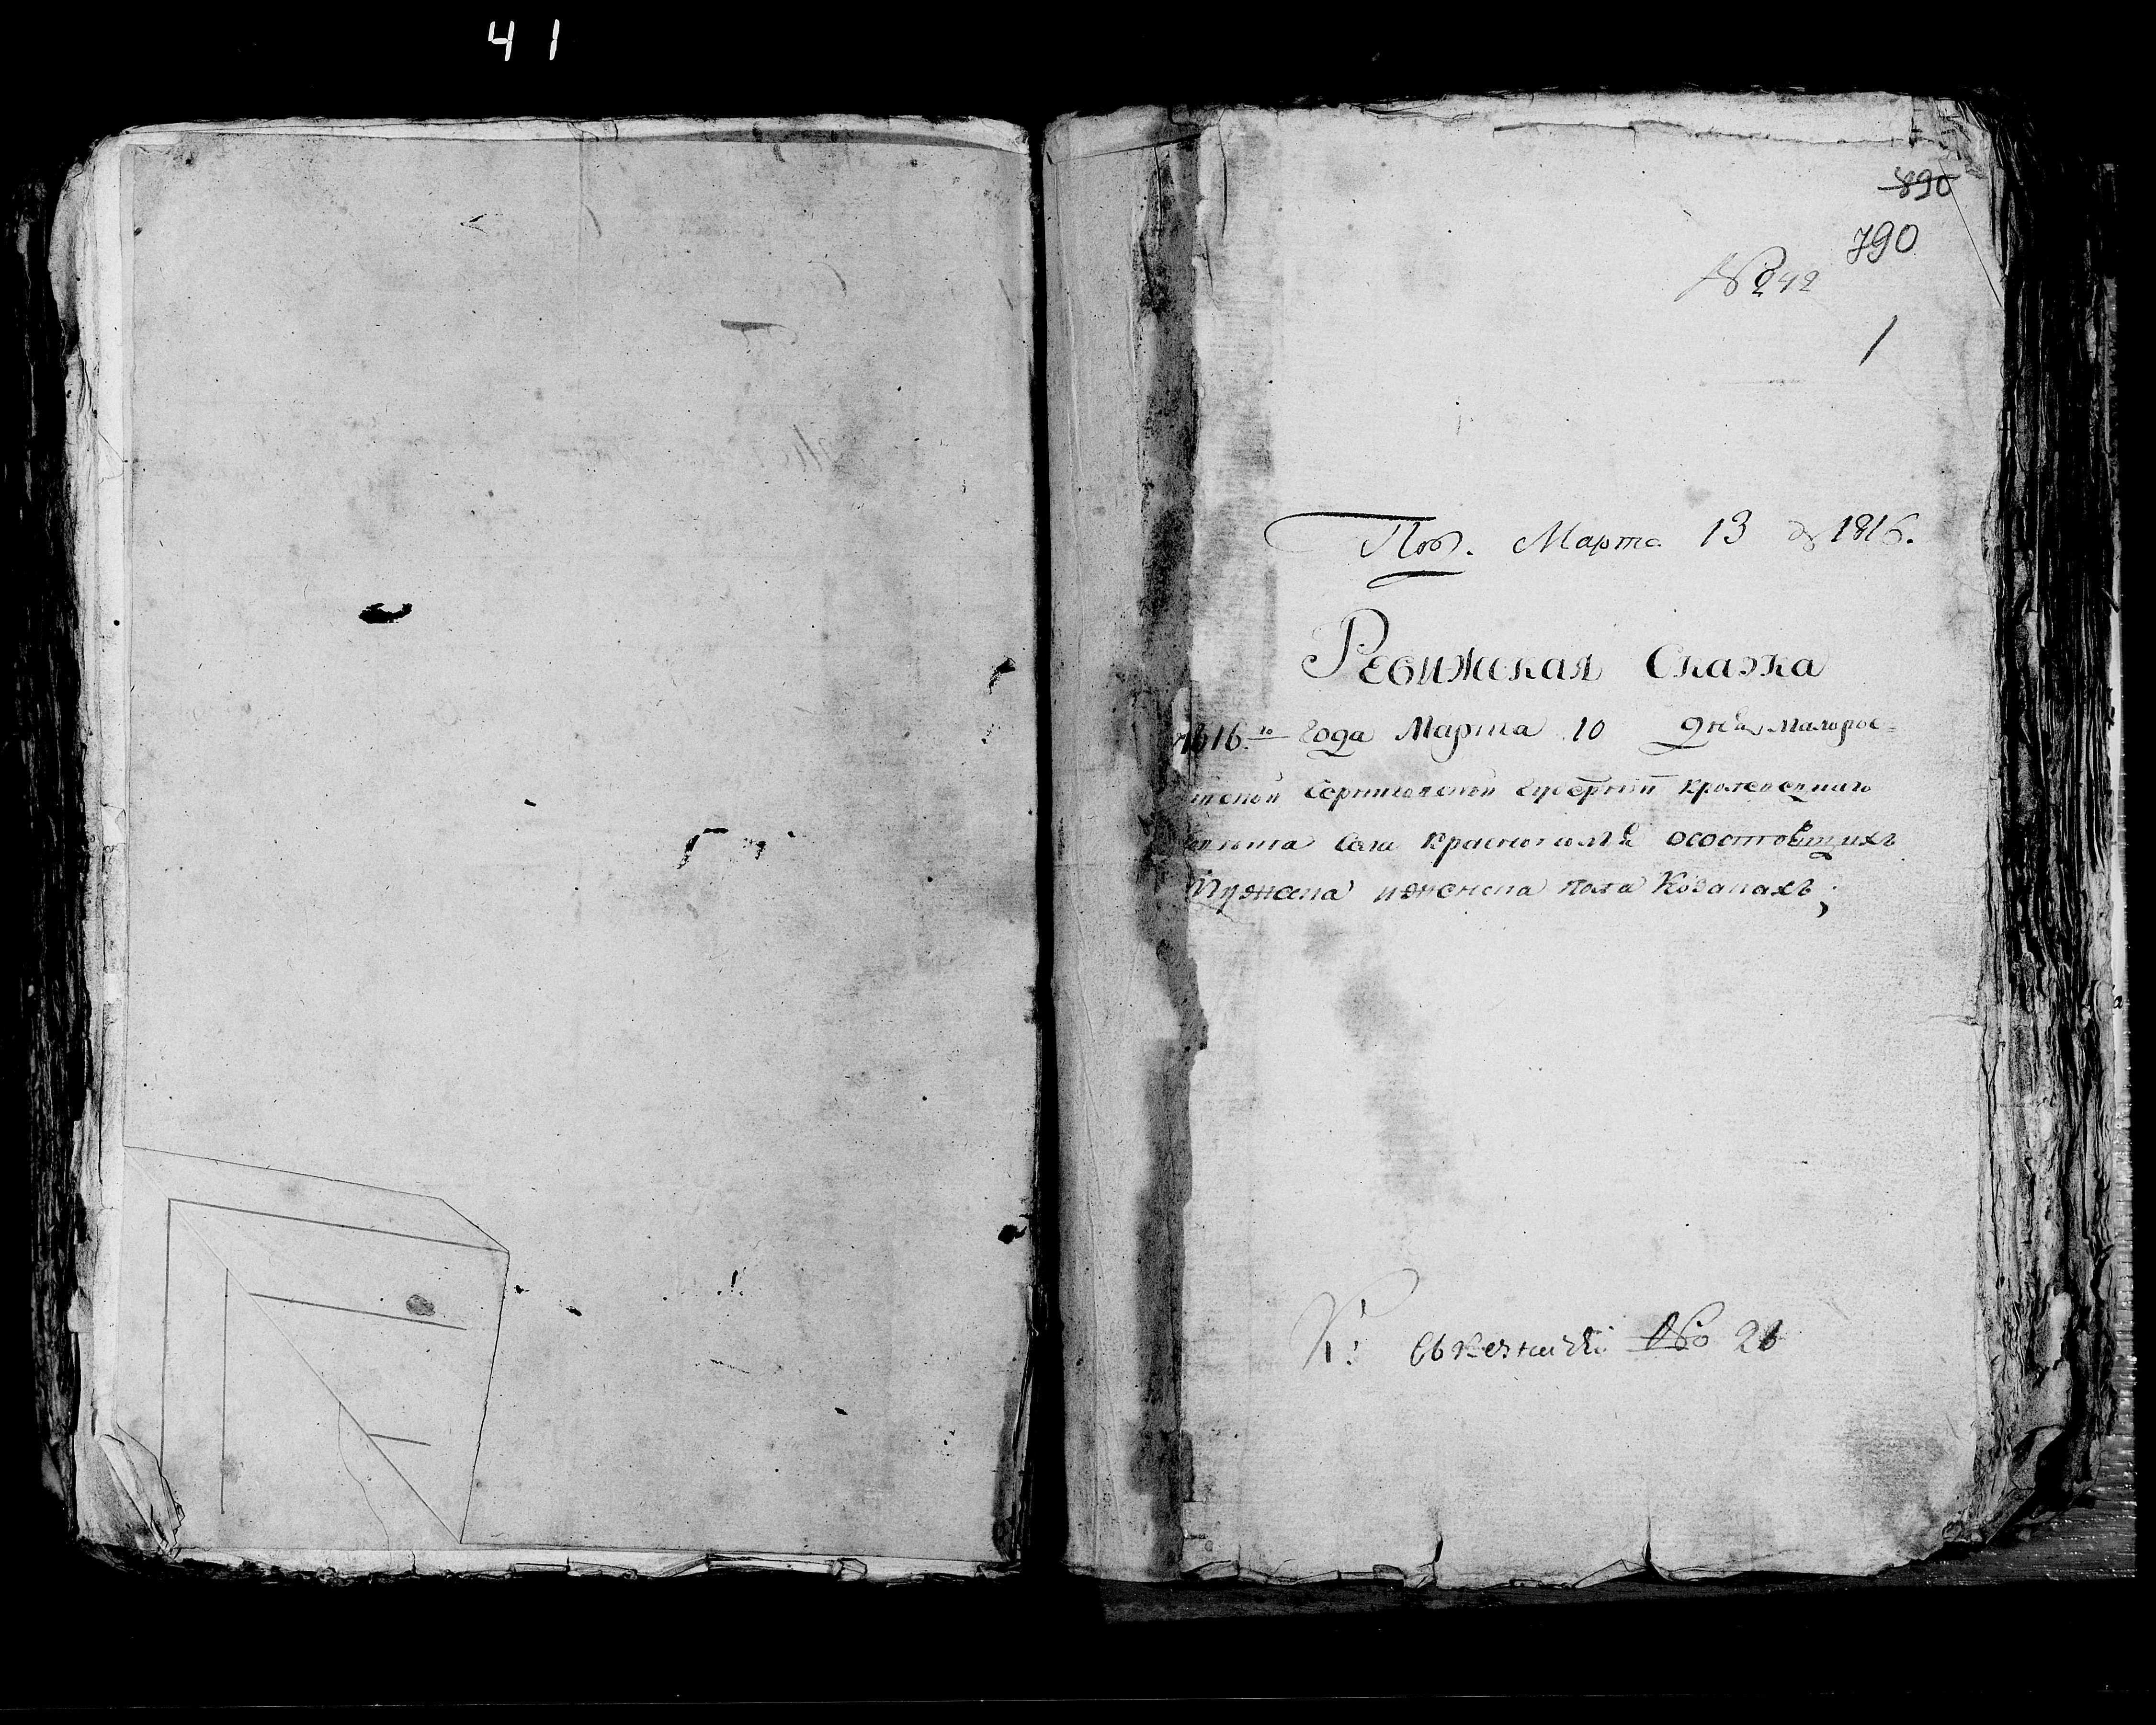 41
890
790
№ 242
1
Под. Марта 13 д 1816.
Ревижская Сказка
1816.го года Марта 10 дня Малорос=
ийской Черниговской Губернии Кролевецкаго
повета села Краснополя осостоящихъ
Мужеска ижен��ка пола Козакахъ;
К: № 26